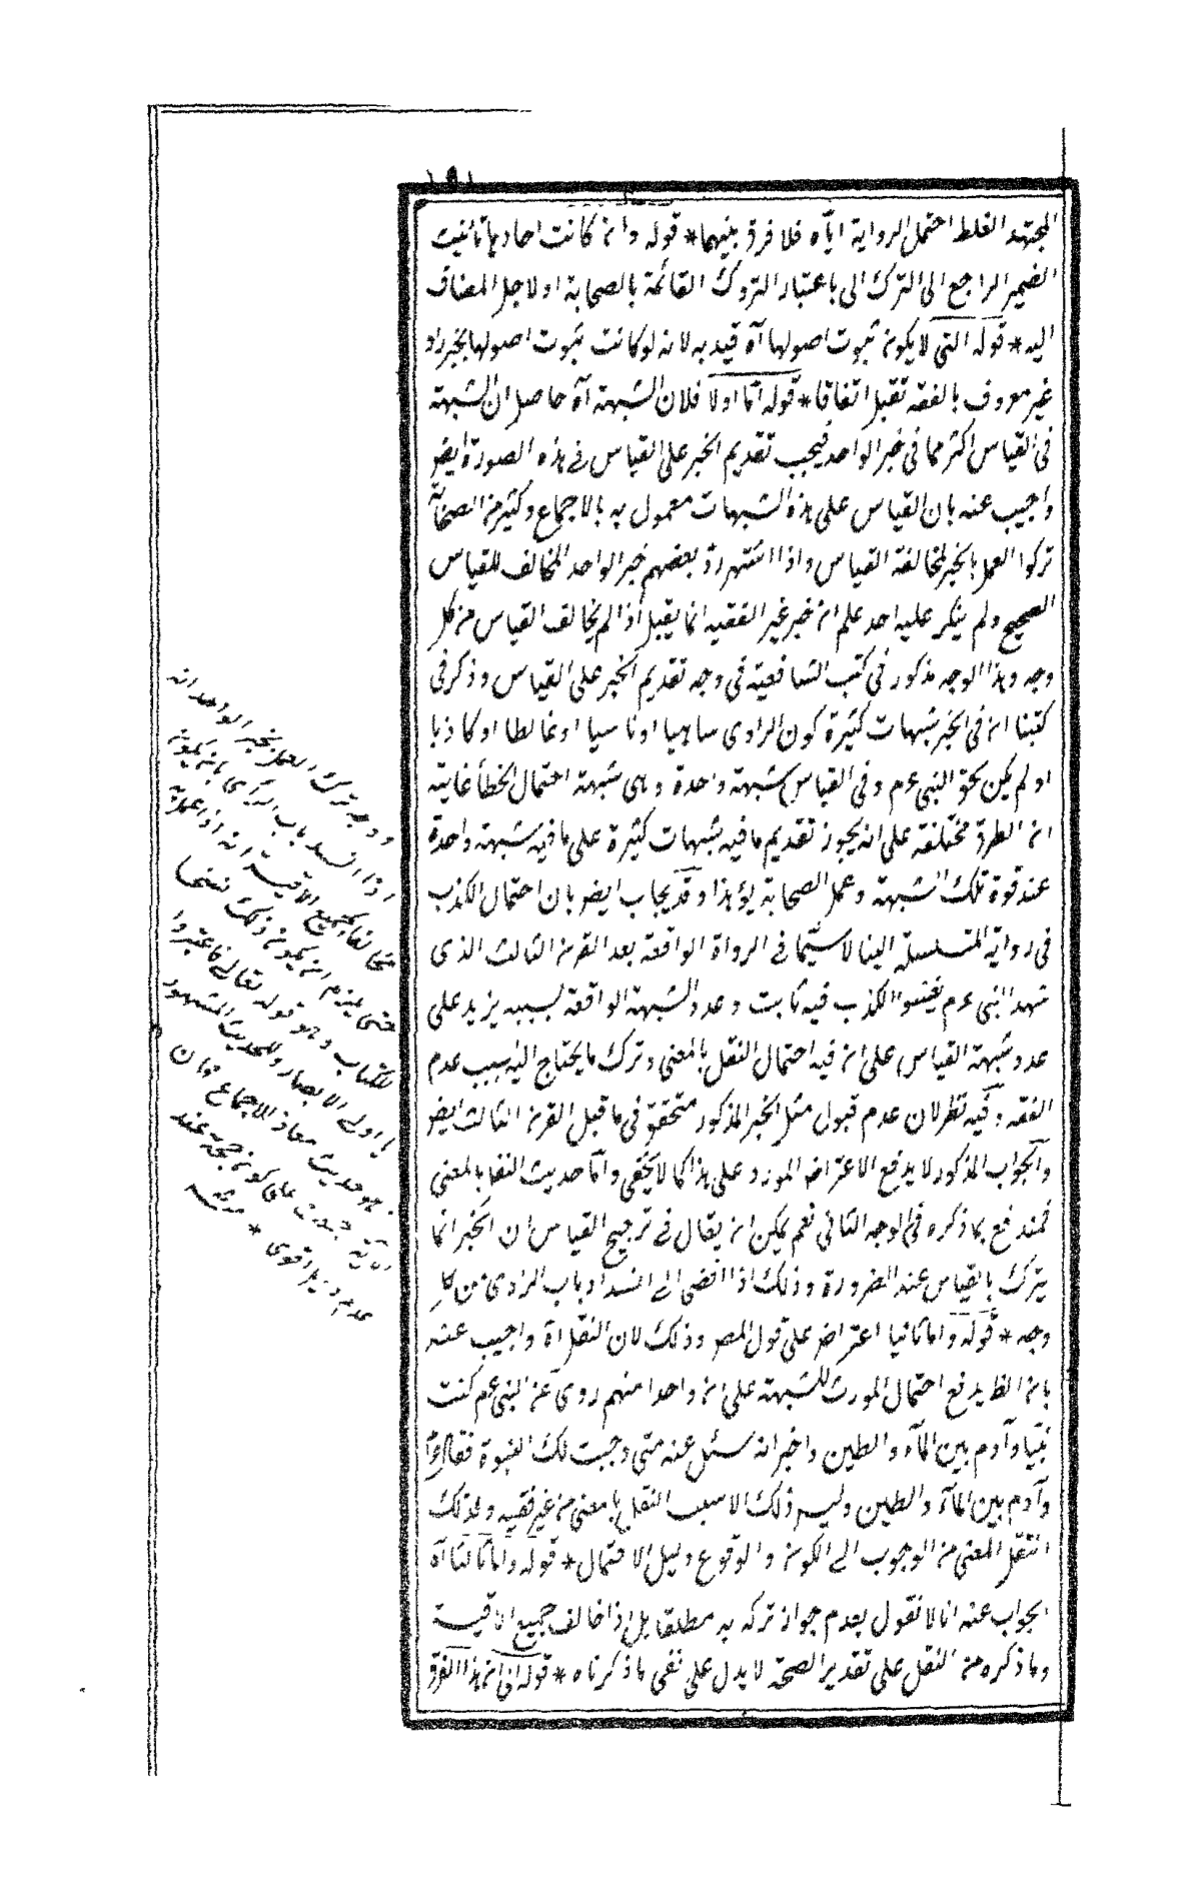 المجتهد الغلط احتمل الرواية اياه فلا فرق بينهما * قوله وان كانت احاديها تانيث
الضمير الراجع الى الترك الى باعتبار التروك القائمة بالصحابة او لاجل المضاف
اليه * قوله التى لا يكون ثبوت اصولها آه قيد به لانه لو كانت ثبوت اصولها بخبر راو
غير معروف بالفقه تقبل اتفاقا * قوله اما اولا فلان الشبهة آه حاصل ان الشبهة
فى القياس اكثر مما فى خبر الواحد فيجب تقديم الخبر على القياس فى هذه الصورة ايض
واجيب عنه بان القياس على هذه الشبهات معمول به بالاجماع وكثير من الصحابة
تركوا العمل بالخبر لمخالفة القياس واذا اشتهر رد بعضهم خبر الواحد المخالف للقياس
الصحيح ولم ينكر عليه احد علم ان خبر غير الفقيه انما يقبل اذا لم يخالف القياس من كل
وجه وهذا الوجه مذكور فى كتب الشافعية فى وجه تقديم الخبر على القياس وذكر فى
كتبنا ان فى الخبر شبهات كثيرة كون الراوى ساهيا او ناسيا او غالطا او كاذبا
او لم يكن بحق النبى عم وفى القياس شبهة واحدة وهى شبهة احتمال الخطأ غايته
ان الطرق مختلفة على انه يجوز تقديم ما فيه شبهات كثيرة على ما فيه شبهة واحدة
عند قوة تلك الشبهة وعمل الصحابة يؤ هذا وقد يجاب ايض بان احتمال الكذب
فى رواية المتسلسلة الينا لا سيما فى الرواة الواقعة بعد القرن الثالث الذى
شهد النبى عم بفشو الكذب فيه ثابت وعدد الشبهة الواقعة بسببه يزيد على
عدد شبهة القياس على ان فيه احتمال النقل بالمعنى وترك ما يحتاج اليه بسبب عدم
الفقه وفيه نظر لان عدم قبول مثل الخبر المذكور متحقق فى ما قبل القرن الثالث ايض
والجواب المذكور لا يدفع الاعتراض المورد على هذا كما لا يخفى واما حديث النقل بالمعنى
فمندفع بما ذكره فى الوجه الثانى نعم يمكن ان يقال فى ترجيح القياس ان الخبر انما
يترك بالقياس عند الضرورة وذلك اذا افضى الى انسداد باب الراى من كل
وجه * قوله واما ثانيا اعتراض على قول المصـ وذلك لان النقل آه واجيب عنه
بان الظ يدفع احتمال المورث للشبهة على ان واحدا منهم روى عن النبى عم كنت
نبيا وآدم بين الماء والطين واخبر انه سئل عنه متى وجبت لك النبوة فقال
وآدم بين الماء والطين وليس ذلك الا سبب النقل بالمعنى من غير فقيه ولذلك
انتقل المعنى من الوجوب الى الكون والوقوع دليل الاحتمال * قوله واما ثالثا آه
الجواب عنه انا لا نقول بعدم جواز تركه به مطلقا بل اذا خالف جميع الاقيسة
وما ذكره من النقل على تقدير الصحة لا يدل على نفى ما ذكرناه * قوله ان هذا الفرق
ووجه ترك العمل بخبر الواحد انه
اذا انسد باب الراى بان يكون
مخالفا لجميع الاقيسة انه اذا عمل به
حتى يلزم ان يكون ذلك نسخا
للكتاب وهو قوله تعالى فاعتبروا
يا اولى الابصار وللحديث المشهور
وهو حديث معاذ والاجماع فان
على كونه حجة عند
عدم دليل اقوى * منه